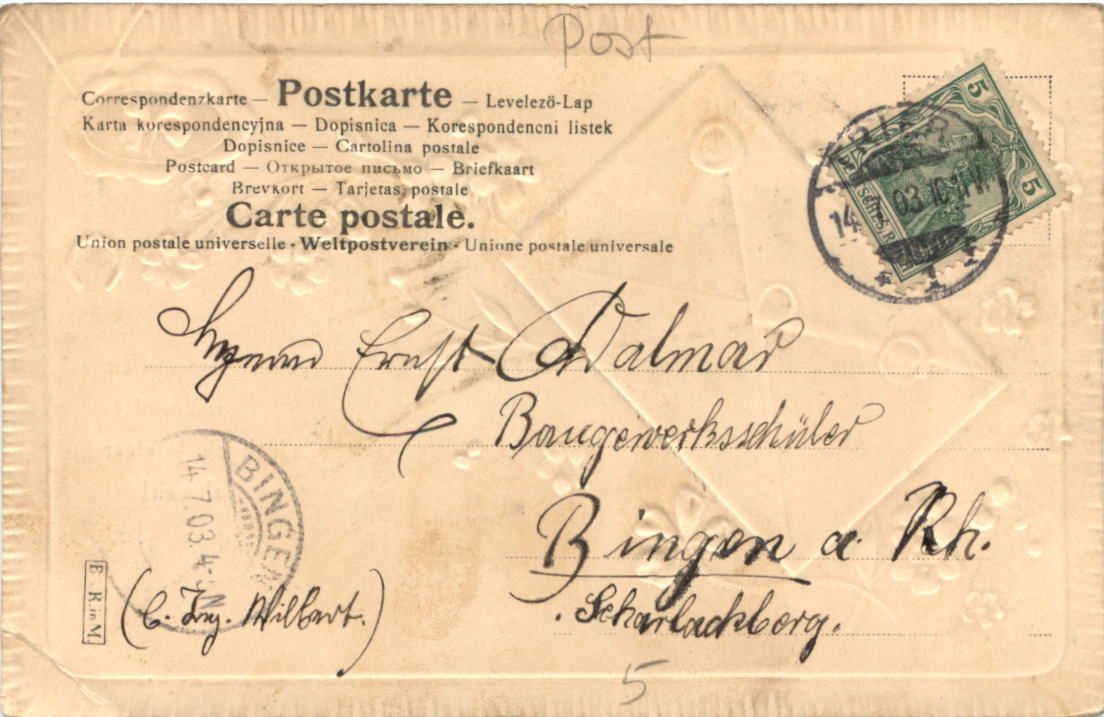 Post
Correspondenzkarte — Postkarte — Levelező-Lap
Karta korespondencyjna — Dopisnica — Korespondencni listek
Dopisnice — Cartolina postale
Postcard — Открытое письмо — Briefkaart
Brevkort — Tarjetas postale
Carte postale.
Union postale universelle - Weltpostverein - Unione postale universale
5
5
TRIER
14. 7. 03. 10-11 V.
Herrn Ernst Walmar
Baugewerksschüler
Bingen a. Rh.
Scharlachberg.
BINGEN
14.7.03.4- N
(b. Wilbert.)
E. R. in M.
5